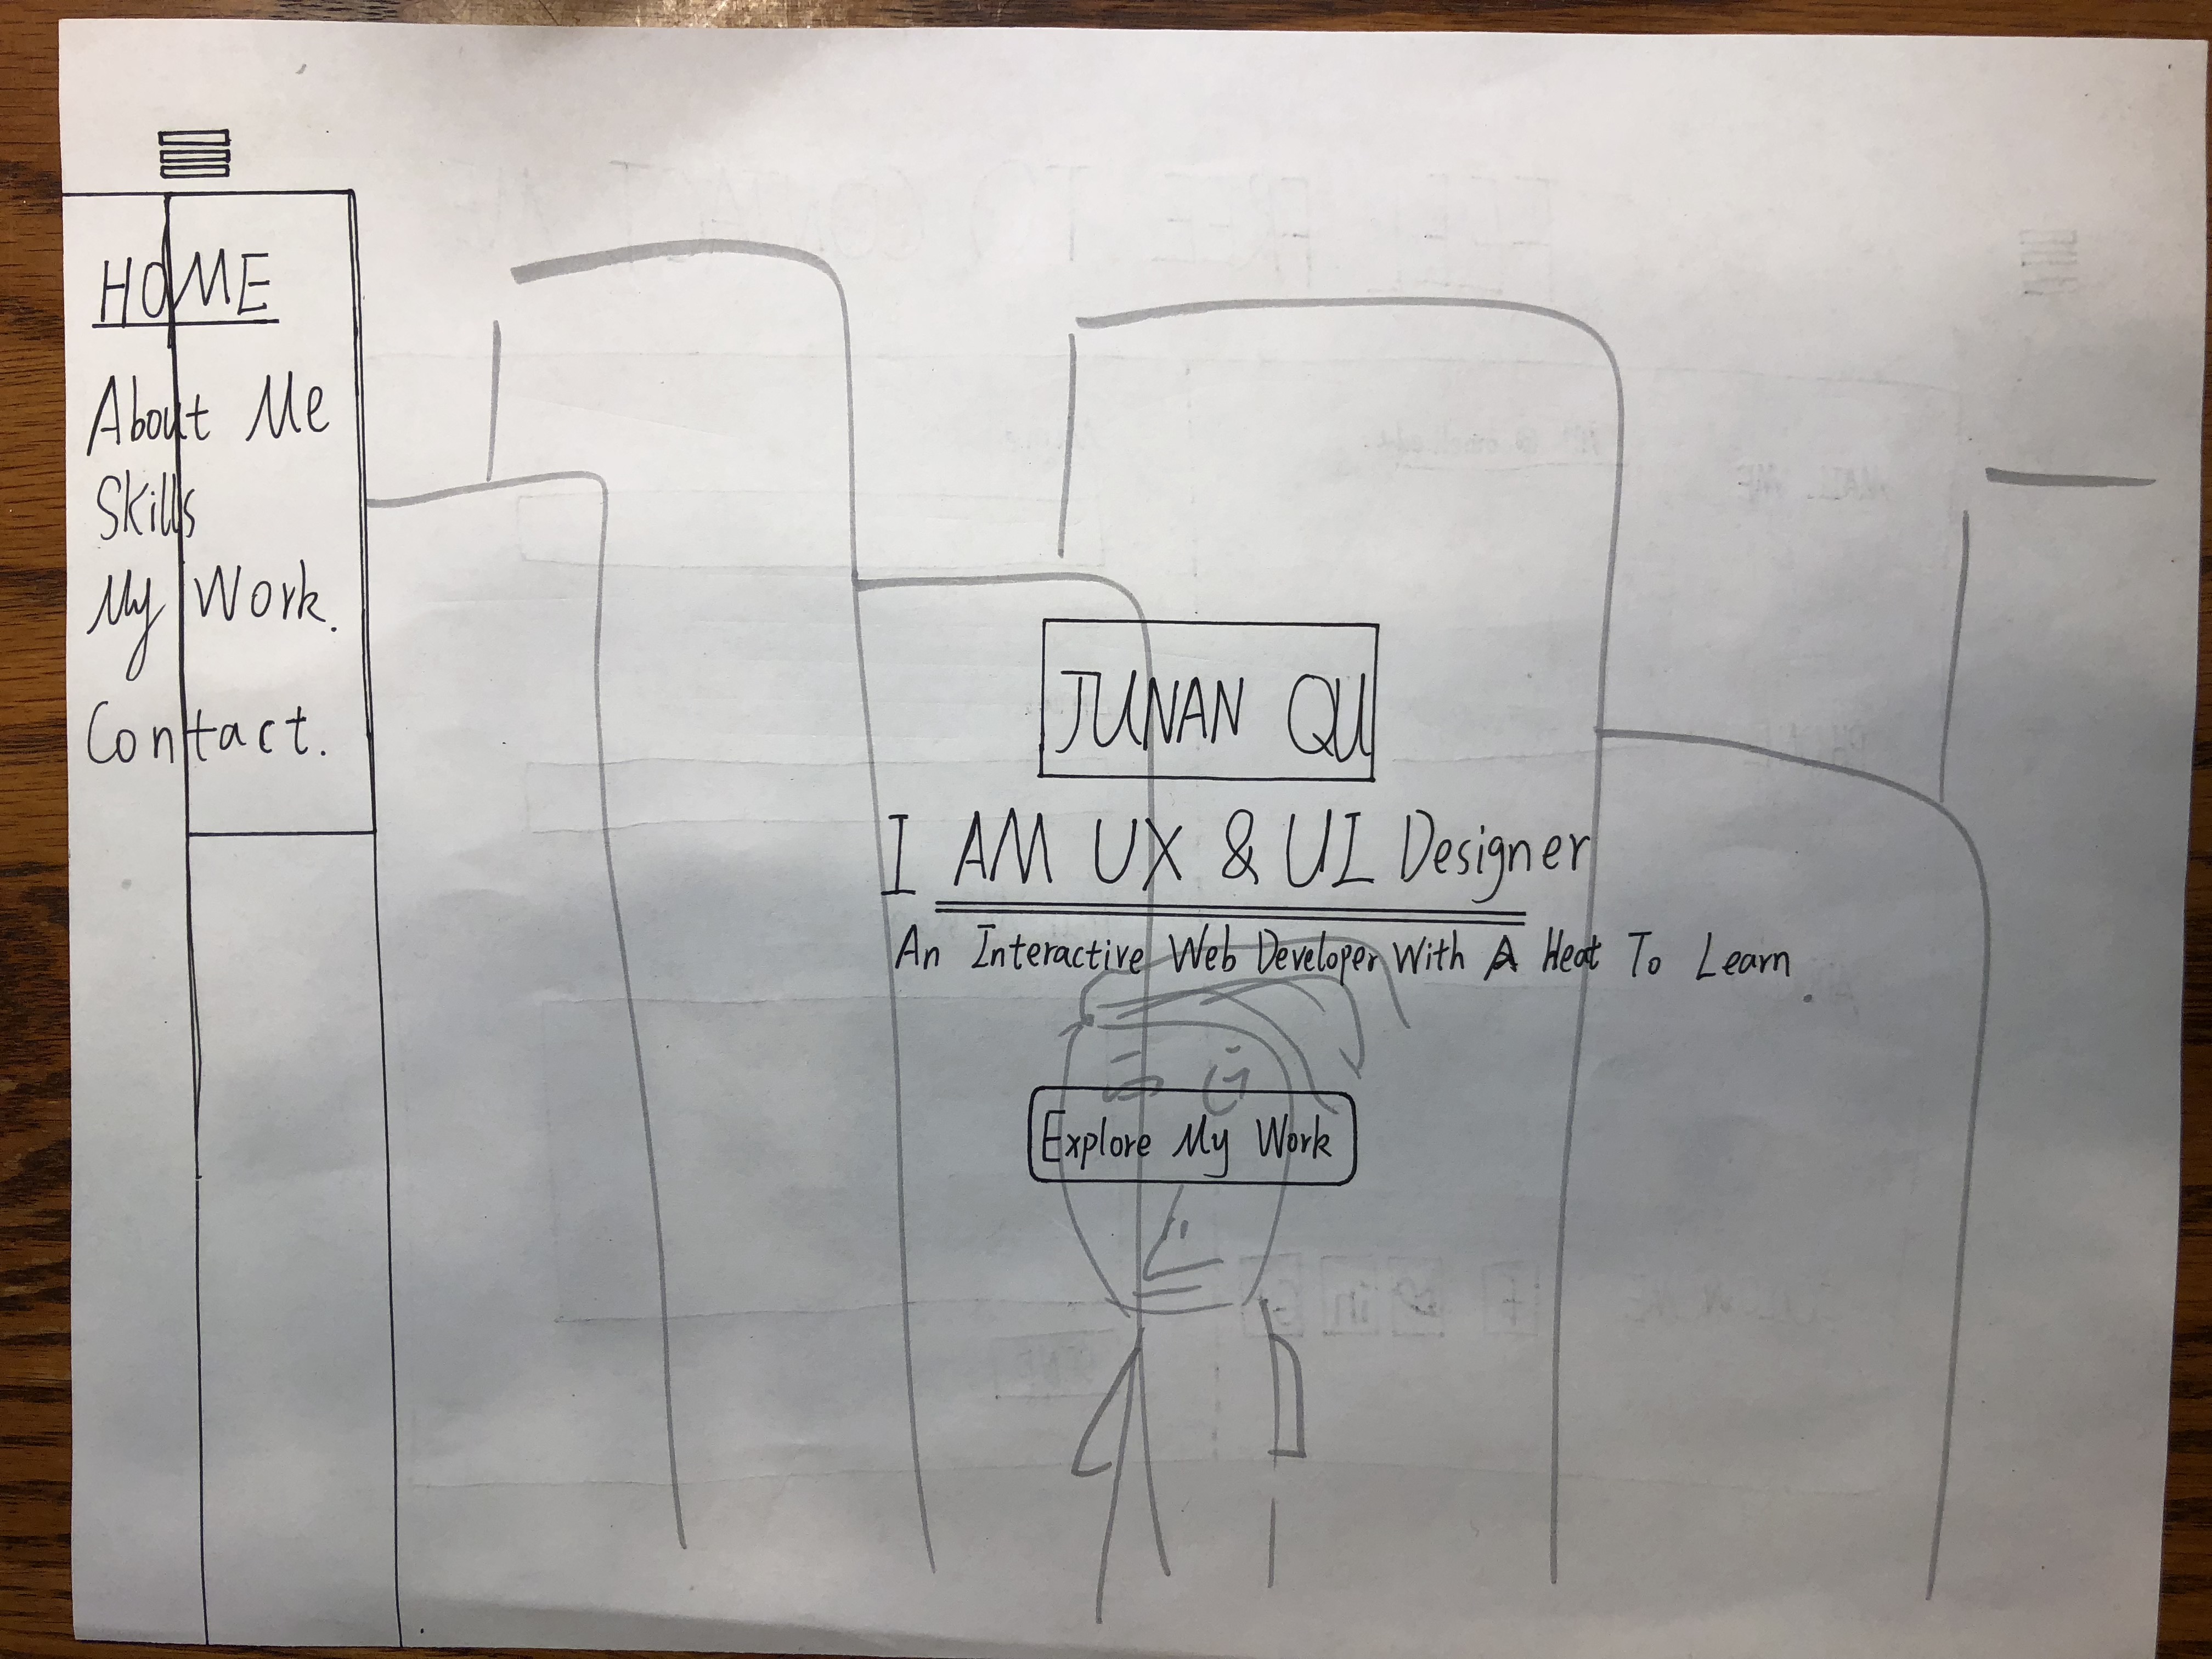 HOME
About Me
Skills
My Work.
Contact.
JUNAN QU
I AM UX & UI Designer
An Interactive Web Developer With A Heat To Learn.
Explore My Work